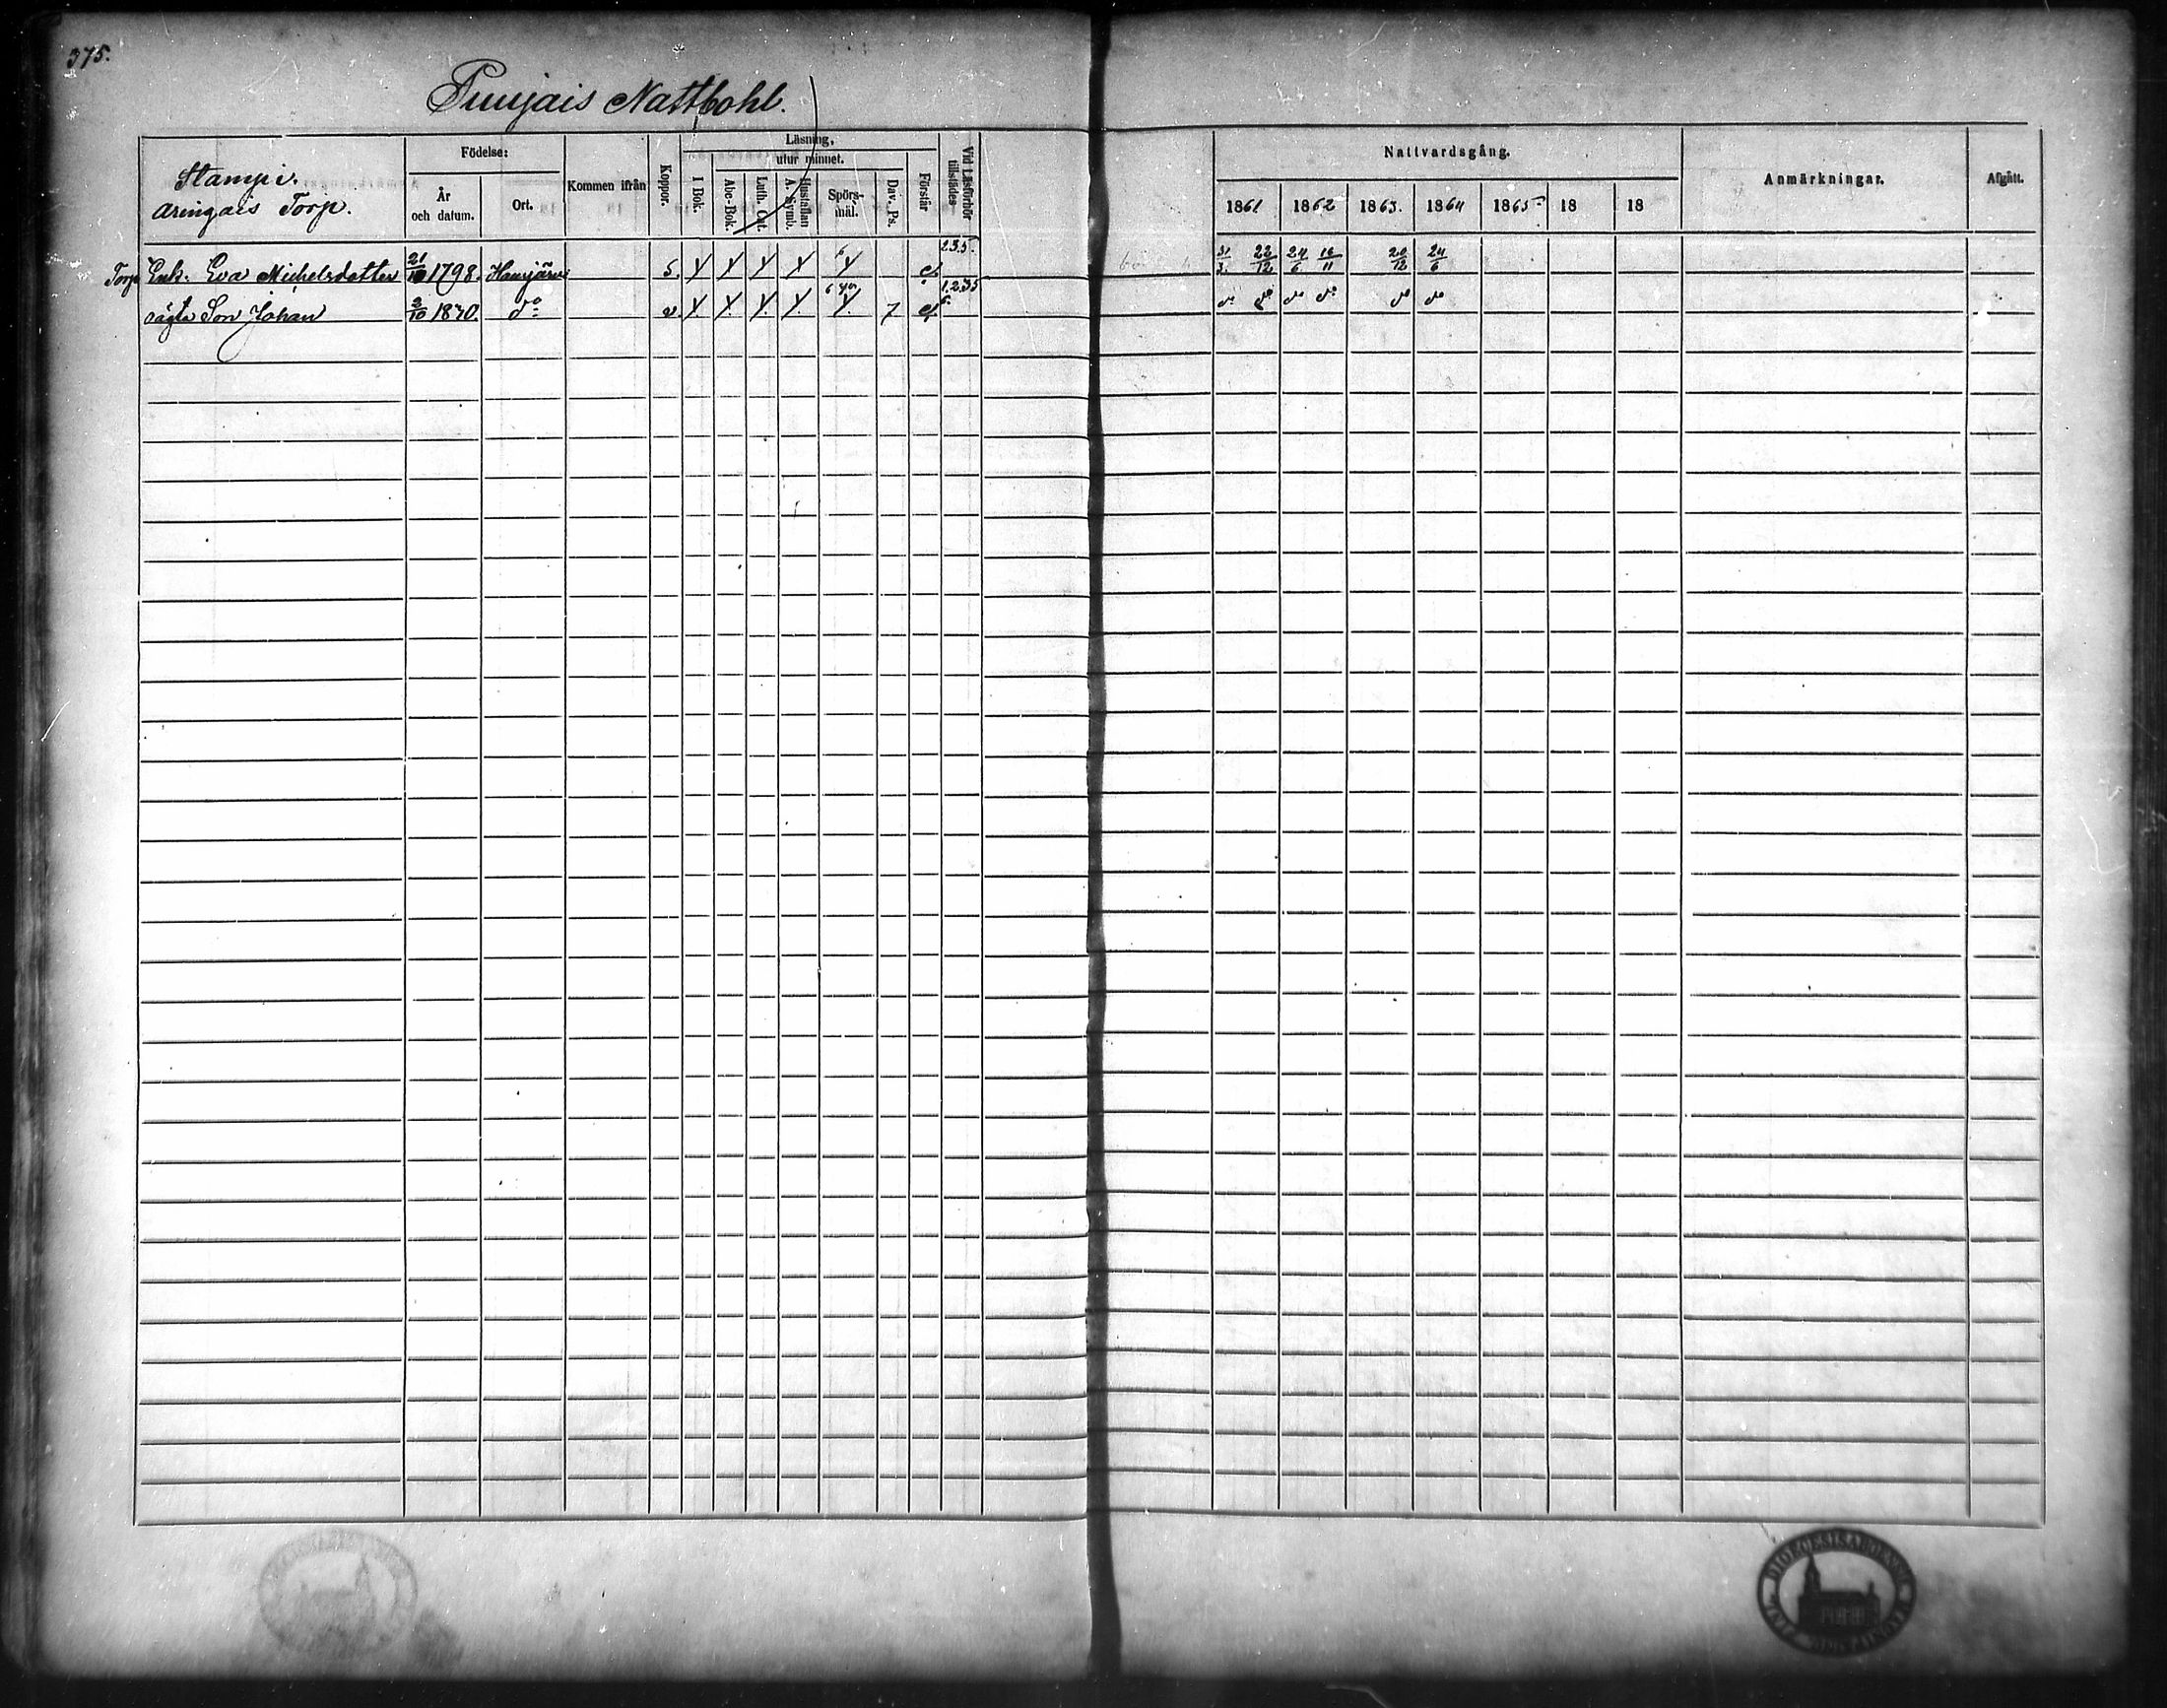 375.
Puujais Nattbohl.
Stampi.
Aringais Torp.
Födelse:
År och datum.
Ort.
Kommen ifrån
Koppor.
Läsning,
I Bok.
utur minnet.
Abc-Bok.
Luth. Cat.
Hustaflan A. Symb.
Spörs-mål.
Dav. Ps.
Förstår
Vid Läsförhör tillstädes
Nattvardsgång.
1861 1862 1863. 1864 1865 18 18
Anmärkningar.
Afgått.
Torp Enk. Eva Michelsdotter 21/10 1798. Hausjärvi s. 2.3.5. 31/3. 22/12 24/6 16/11 20/12 24/6
oägta Son Johan 2/10 1840. do v 7 1.2.3.5 6. do do do do do do